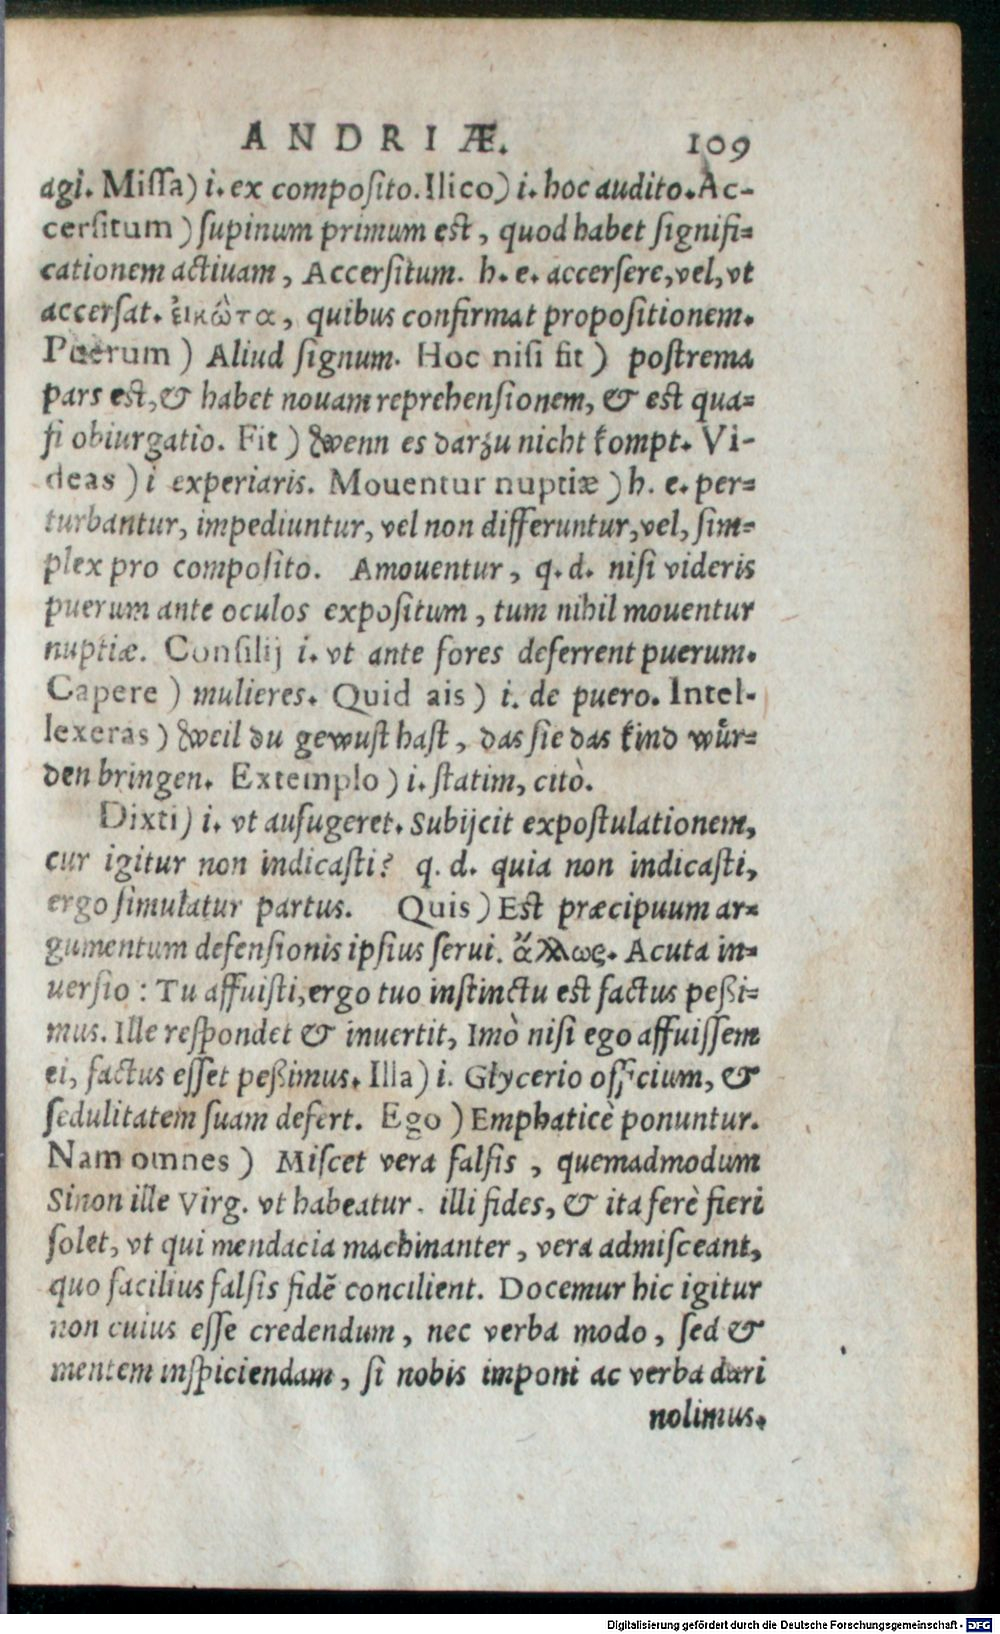 ANDRIÆ. 109
agi. Missa) i. ex composito. Ilico) i. hoc audito. Ac-
cersitum) supinum primum est, quod habet signifi-
cationem actiuam, Accersitum. h. e. accersere, vel, vt
accersat. εἰκῶτα, quibus confirmat propositionem.
Puerum) Aliud signum. Hoc nisi fit) postrema
pars est, & habet nouam reprehensionem, & est qua-
si obiurgatio. Fit) wenn es darzu nicht kompt. Vi-
deas) i experiaris. Mouentur nuptiæ) h. e. per-
turbantur, impediuntur, vel non differuntur, vel, sim-
plex pro composito. Amouentur, q. d. nisi videris
puerum ante oculos expositum, tum nihil mouentur
nuptiæ. Consilij i. vt ante fores deferrent puerum.
Capere) mulieres. Quid ais) i. de puero. Intel-
lexeras) weil du gewust hast, das sie das kind wuͤr-
den bringen. Extemplo) i. statim, citò.
Dixti) i. vt aufugeret. Subijcit expostulationem,
cur igitur non indicasti? q. d. quia non indicasti,
ergo simulatur partus. Quis) Est præcipuum ar-
gumentum defensionis ipsius serui. ἄλλως. Acuta in-
uersio: Tu affuisti, ergo tuo instinctu est factus peßi-
mus. Ille respondet & inuertit, Imò nisi ego affuissem
ei, factus esset peßimus. Illa) i. Glycerio officium, &
sedulitatem suam defert. Ego) Emphaticè ponuntur.
Nam omnes) Miscet vera falsis, quemadmodum
Sinon ille Virg. vt habeatur. illi fides, & ita ferè fieri
solet, vt qui mendacia machinanter, vera admisceant,
quo facilius falsis fidẽ concilient. Docemur hic igitur
non cuius esse credendum, nec verba modo, sed &
mentem inspiciendam, si nobis imponi ac verba dari
nolimus.
Digitalisierung gefördert durch die Deutsche Forschungsgemeinschaft - DFG